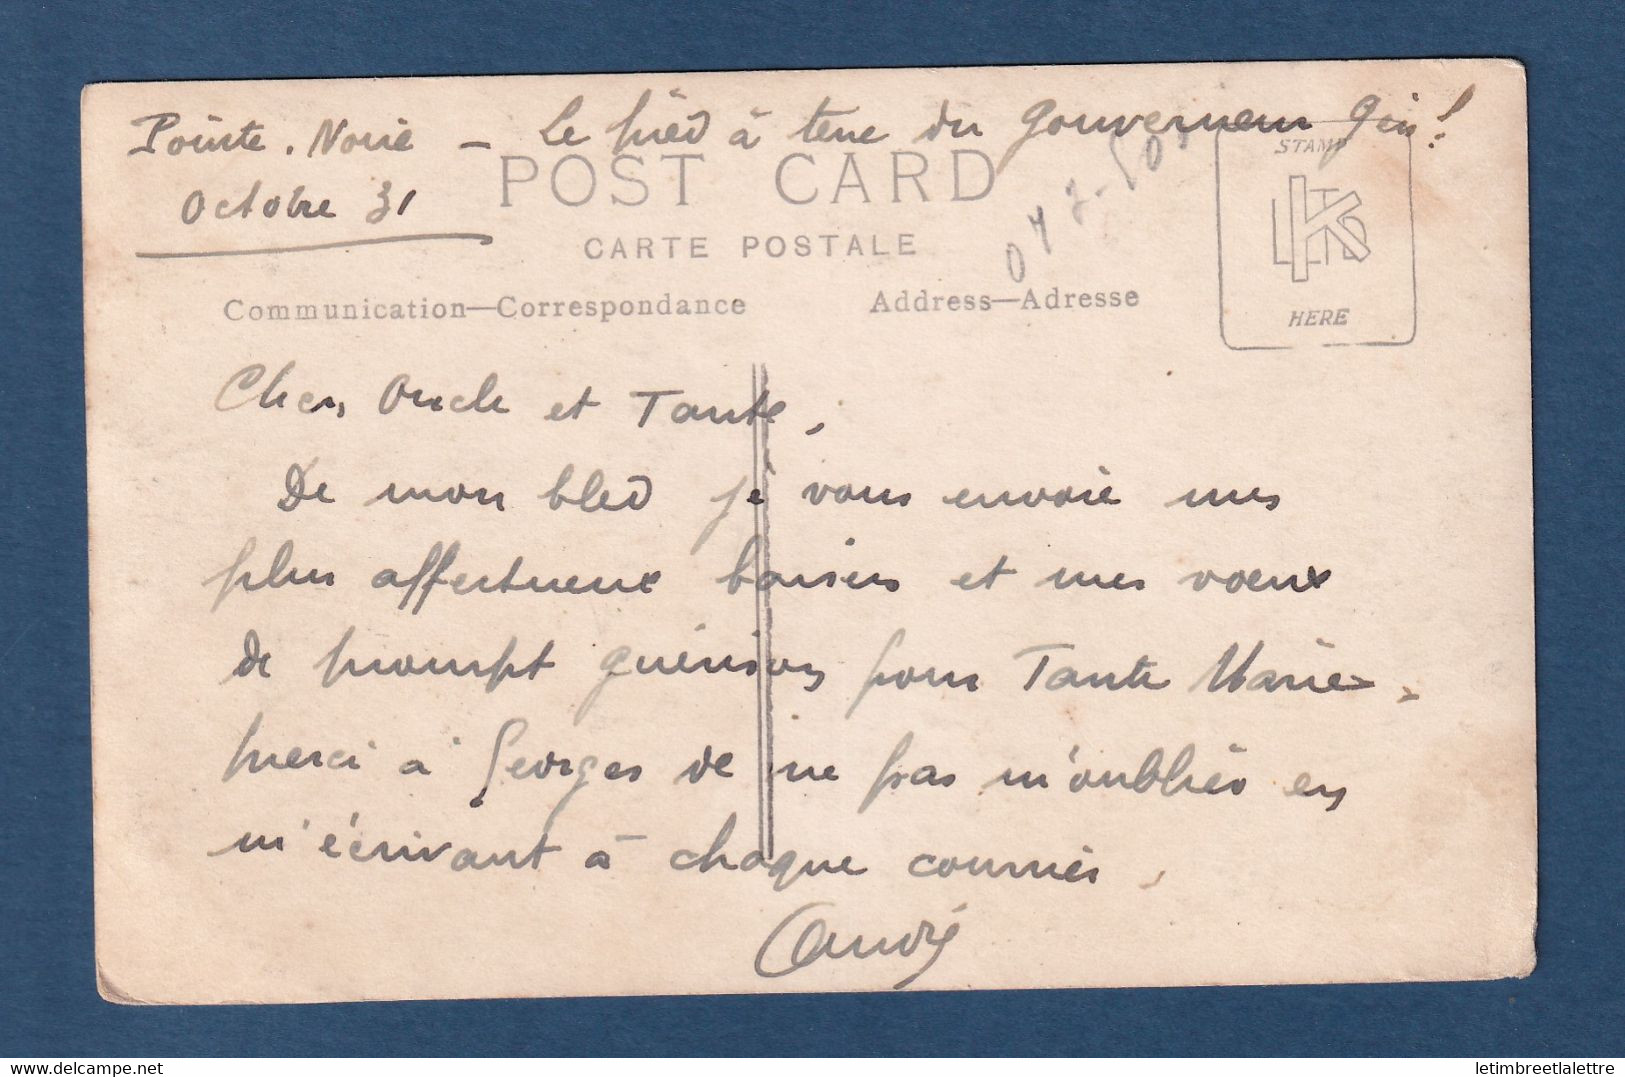 Pointe-Noire - Le pied à terre du gouverneur Gén!
Octobre 31
POST CARD
CARTE POSTALE
STAMP
HERE
Communication—Correspondance
Address—Adresse
Chers Oncle et Tante,
De mon bled je vous envoie mes
plus affectueux baisers et mes voeux
de prompt guérison pour Tante Marie.
Merci à Georges de ne pas m'oublier en
m'écrivant à chaque courrier.
André
letimbreetlalettre